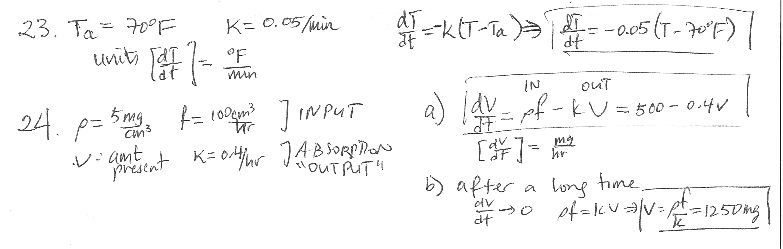 23. Ta = 70°F K = 0.05/min dT/dt = -K(T-Ta) ⇒ dT/dt = -0.05(T-70°F)
units [dT/dt] = °F/min
24. ρ = 5mg/cm³ f = 100cm³/hr ] INPUT
V = amt present K = 0.4/hr ] ABSORPTION "OUTPUT"
IN OUT
a) dV/dt = ρf - kV = 500 - 0.4V
[dV/dt] = mg/hr
b) after a long time
dV/dt → 0 ρf = kV ⇒ V = ρf/k = 1250mg